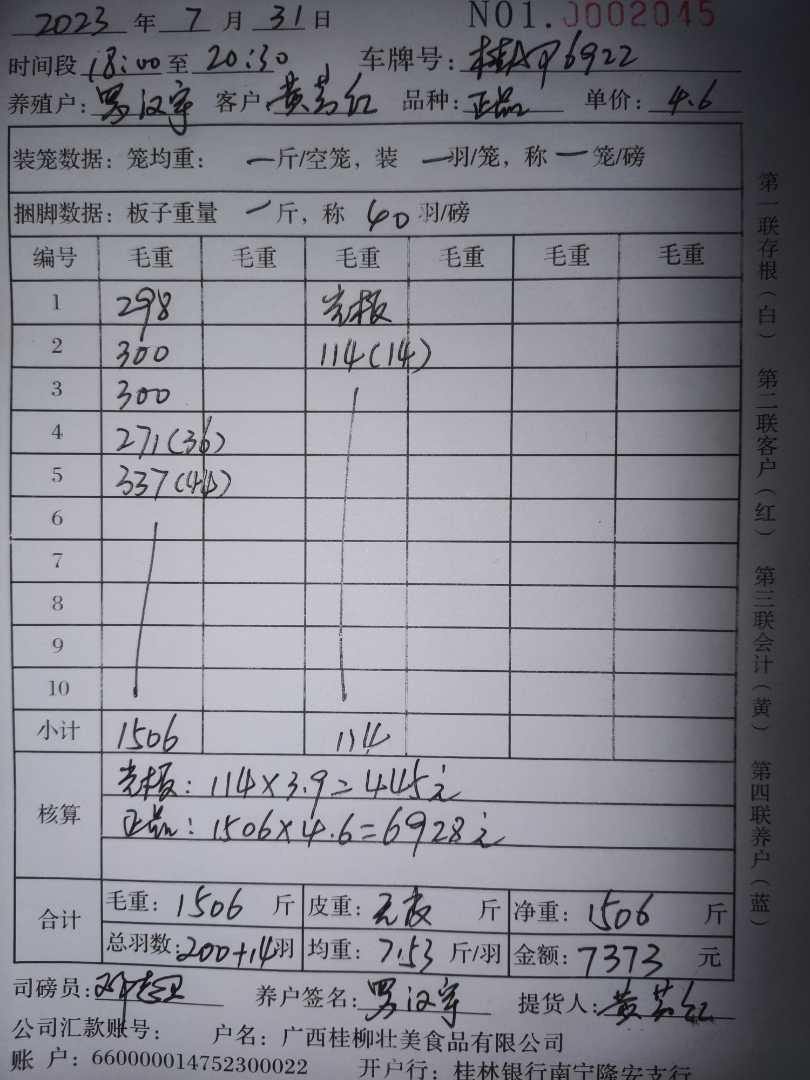 2023 年 7 月 31 日 NO1.0002045
时间段 18:00 至 20:30 车牌号: 桂AP6922
养殖户: 罗汉宇 客户 黄 红 品种: 正品 单价: 4.6
装笼数据: 笼均重: 一斤/空笼, 装 一羽/笼, 称 一 笼/磅
捆脚数据: 板子重量 一斤, 称 40 羽/磅
编号 毛重 毛重 毛重 毛重 毛重 毛重
1 298 光板
2 300 114(14)
3 300
4 271(36)
5 337(44)
6
7
8
9
10
小计 1506 114
核算
光板: 114×3.9=445元
正品: 1506×4.6=6928元
合计
毛重: 1506 斤 皮重: 斤 净重: 1506 斤
总羽数: 200+14羽 均重: 7.53 斤/羽 金额: 7373 元
司磅员: 养户签名: 罗汉宇 提货人: 黄 红
公司汇款账号: 户名: 广西桂柳壮美食品有限公司
账 户: 660000014752300022 开户行: 桂林银行南宁隆安支行
第一联存根(白) 第二联客户(红) 第三联会计(黄) 第四联养户(蓝)